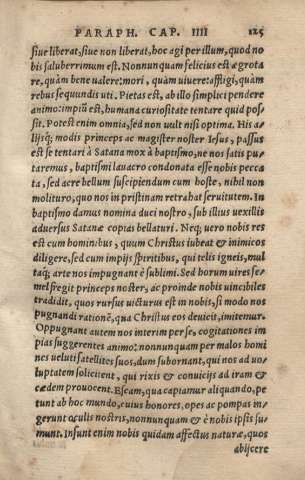 PARAPH. CAP. IIII 125
siue liberat, siue non liberat, hoc agi per illum, quod no
bis saluberrimum est. Nonnunquam felicius est ægrota
re, quàm bene ualere: mori, quàm uiuere: affligi, quàm
rebus secundis uti. Pietas est, ab illo simplici pendere
animo: impiũ est, humana curiositate tentare quid pos⸗
sit. Potest enim omnia, sed non uult nisi optima. His a⸗
lijsq; modis princeps ac magister noster Iesus, passus
est se tentari à Satana mox à baptismo, ne nos satis pu⸗
taremus, baptismi lauacro condonata esse nobis pecca
ta, sed acre bellum suscipiendum cum hoste, nihil non
molituro, quo nos in pristinam retrahat seruitutem. In
baptismo damus nomina duci nostro, sub illius uexillis
aduersus Satanæ copias bellaturi. Neq; uero nobis res
est cum hominibus, quum Christus iubeat & inimicos
diligere, sed cum impijs spiritibus, qui telis igneis, mul
taq; arte nos impugnant è sublimi. Sed horum uires se⸗
mel fregit princeps noster, ac proinde nobis uincibiles
tradidit, quos rursus uicturus est in nobis, si modo nos
pugnandi rationẽ, qua Christus eos deuicit, imitemur.
Oppugnant autem nos interim per se, cogitationes im
pias suggerentes animo: nonnunquam per malos homi
nes ueluti satellites suos, dum subornant, qui nos ad uo⸗
luptatem solicitent, qui rixis & conuicijs ad iram &
cædem prouocent. Escam, qua capiamur aliquando, pe
tunt ab hoc mundo, cuius honores, opes ac pompas in⸗
gerunt oculis nostris, nonnunquam & è nobis ipsis su⸗
munt. Insunt enim nobis quidam affectus naturæ, quos
abijcere